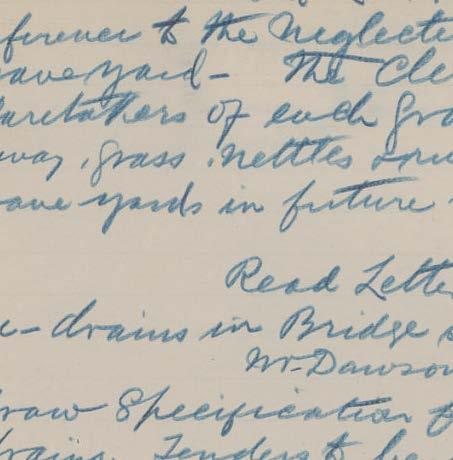 ference to the Neglecte
rave yard - The Cle
Caretakers of each Gra
way, grass, nettles
rave yards in future
Read Lette
e-drains in Bridge s
Mr. Dawson
Draw Specification f
drains. Tenders to be